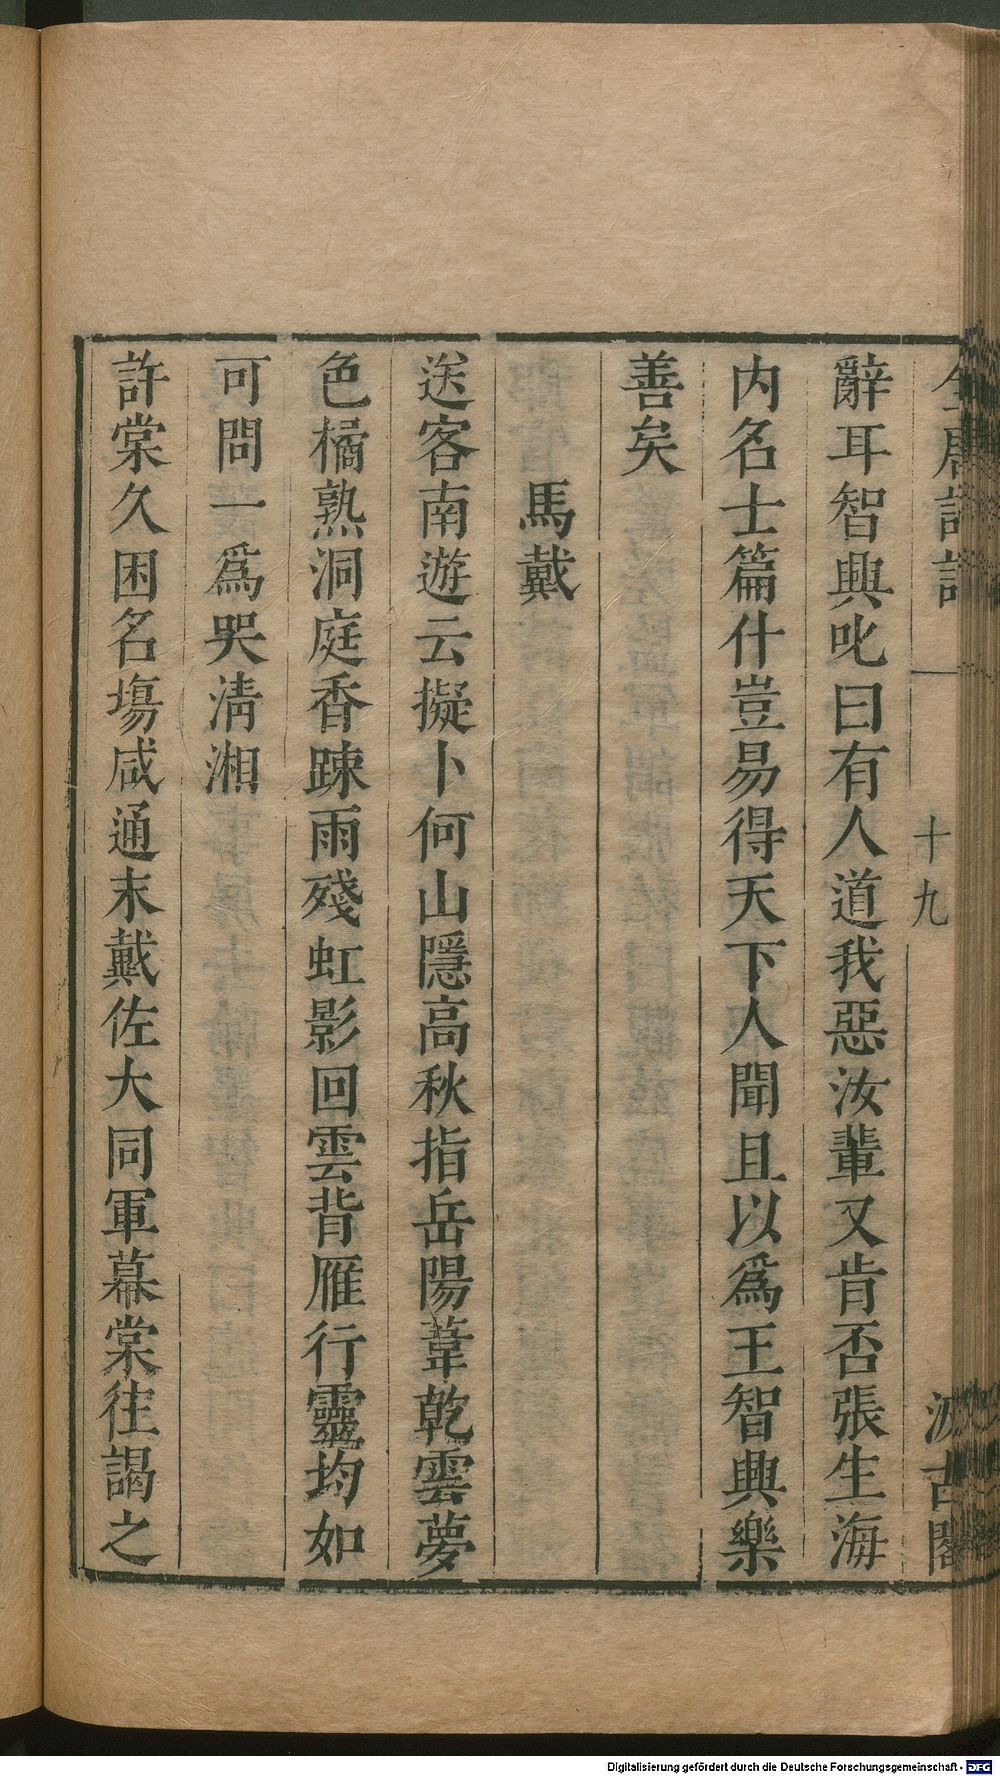 全唐詩話
十九
汲古閣
辭耳智興叱曰有人道我惡汝輩又肯否張生海
内名士篇什豈易得天下人聞且以爲王智興樂
善矣
馬戴
送客南遊云擬卜何山隱高秋指岳陽葦乾雲夢
色橘熟洞庭香踈雨殘虹影回雲背雁行靈均如
可問一爲哭清湘
許棠久困名塲咸通末戴佐大同軍幕棠往謁之
Digitalisierung gefördert durch die Deutsche Forschungsgemeinschaft - DFG